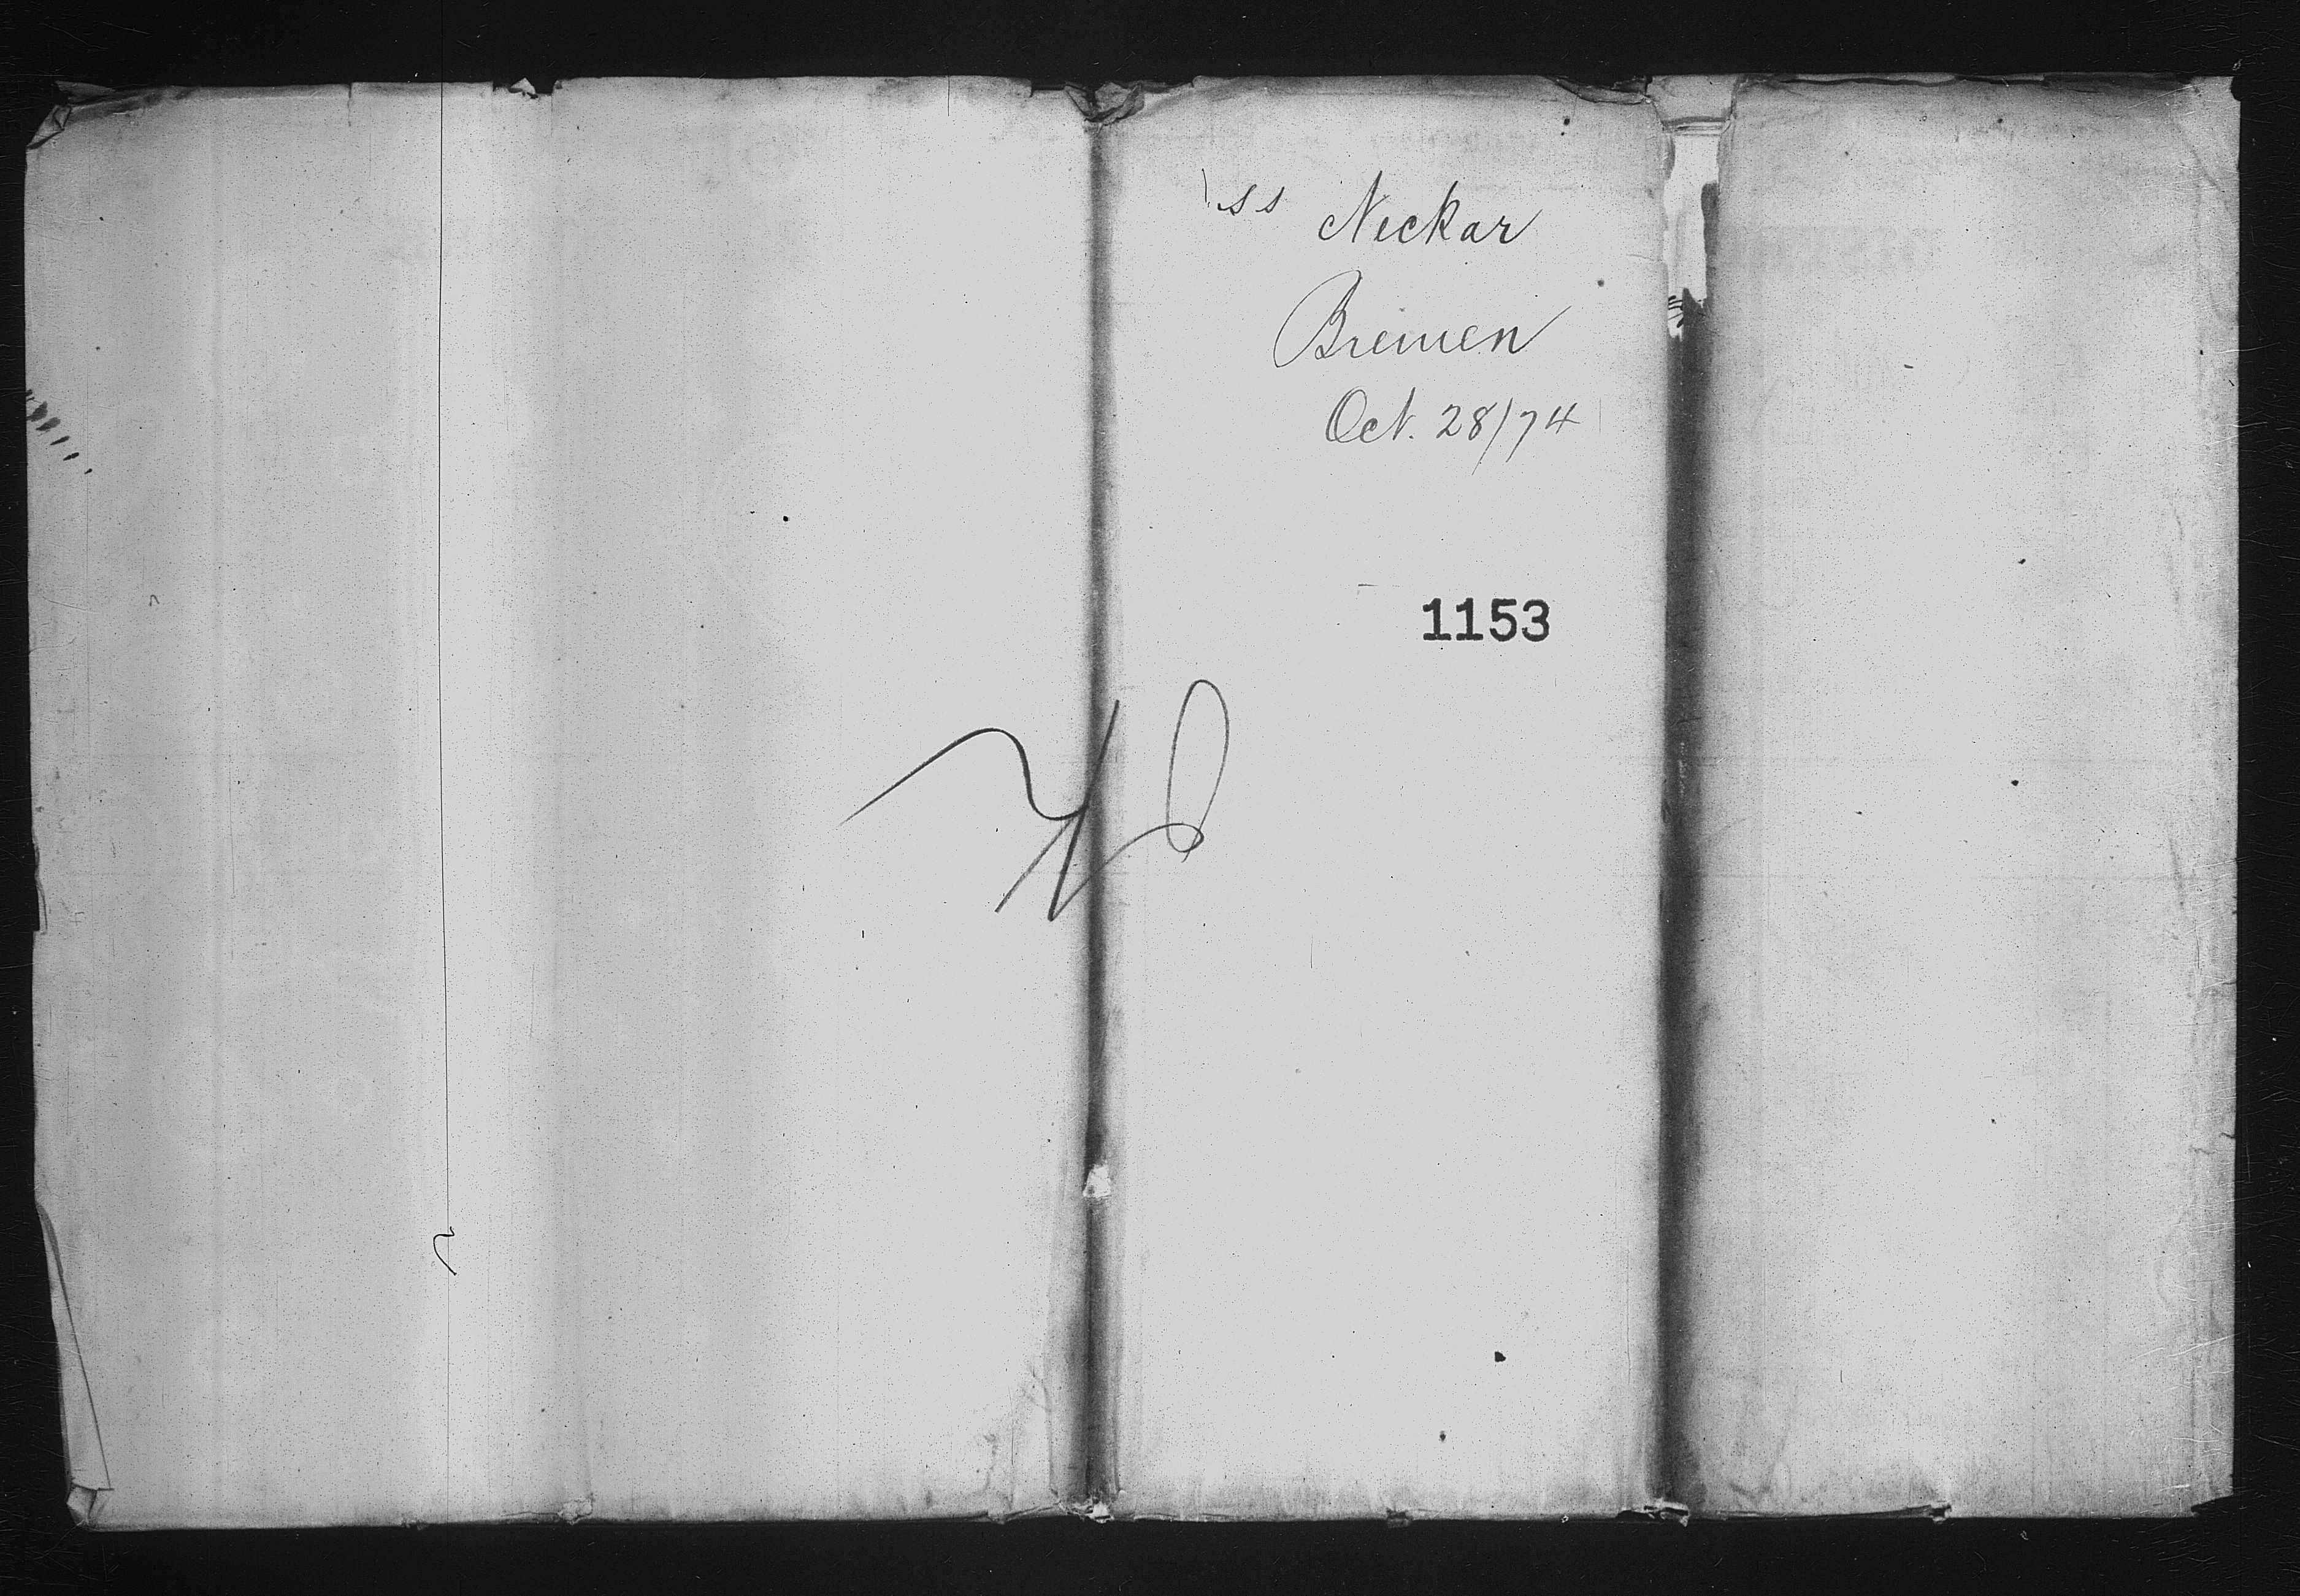 ss Neckar
Bremen
Oct. 28/74
1153